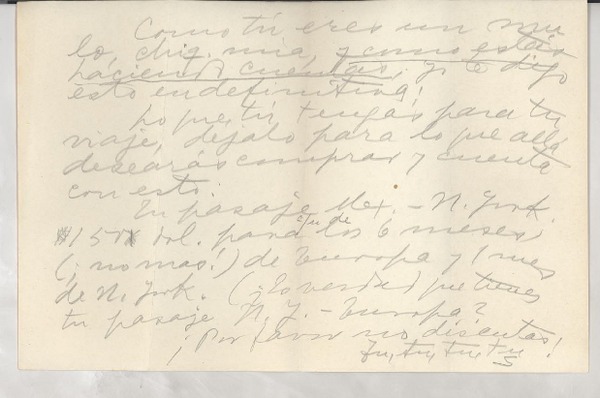 Como tú eres un mu
lo, chiq. mía, y como estás
haciendo cuentas, yo te digo
esto en definitiva:
Lo que tú tengas para tu
viaje, déjalo para lo que allá
desearás comprar y cuenta
con esto:
Tu pasaje Mex. - N. York.
$150 dol. para c/u de los 6 meses
(¡no mas!) de Europa y 1 mes
de N. York. (¿Es verdad que tienes
tu pasaje N. Y. - Europa?
¡Por favor no discutas!
Tu, tu, tu, tu